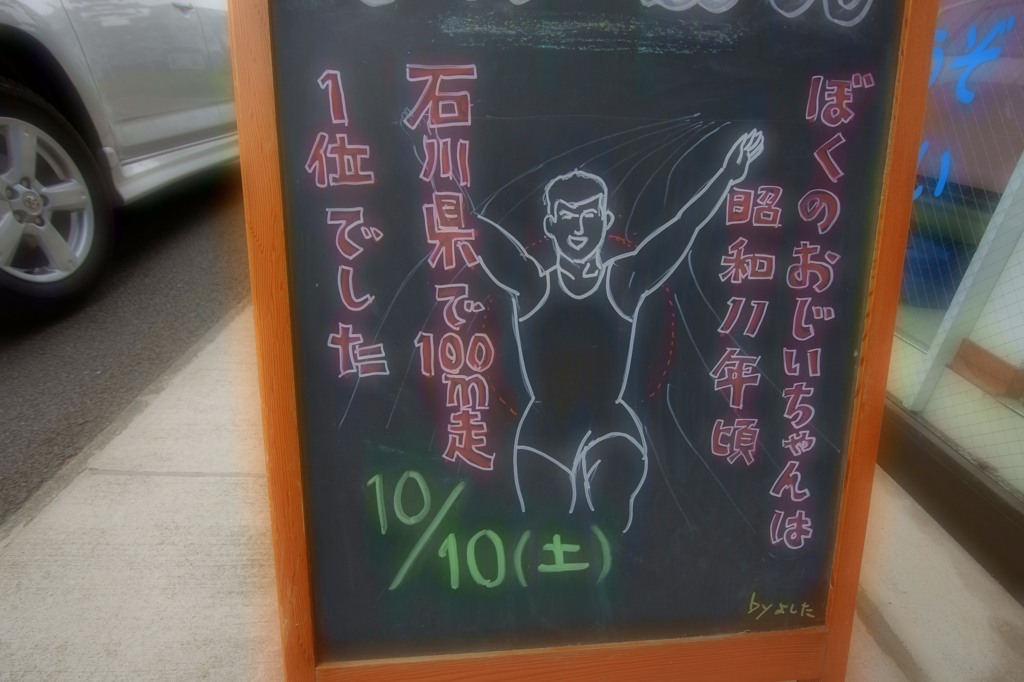 ぼくのおじいちゃんは
昭和11年頃
石川県で100m走
1位でした
10/10(土)
byよした